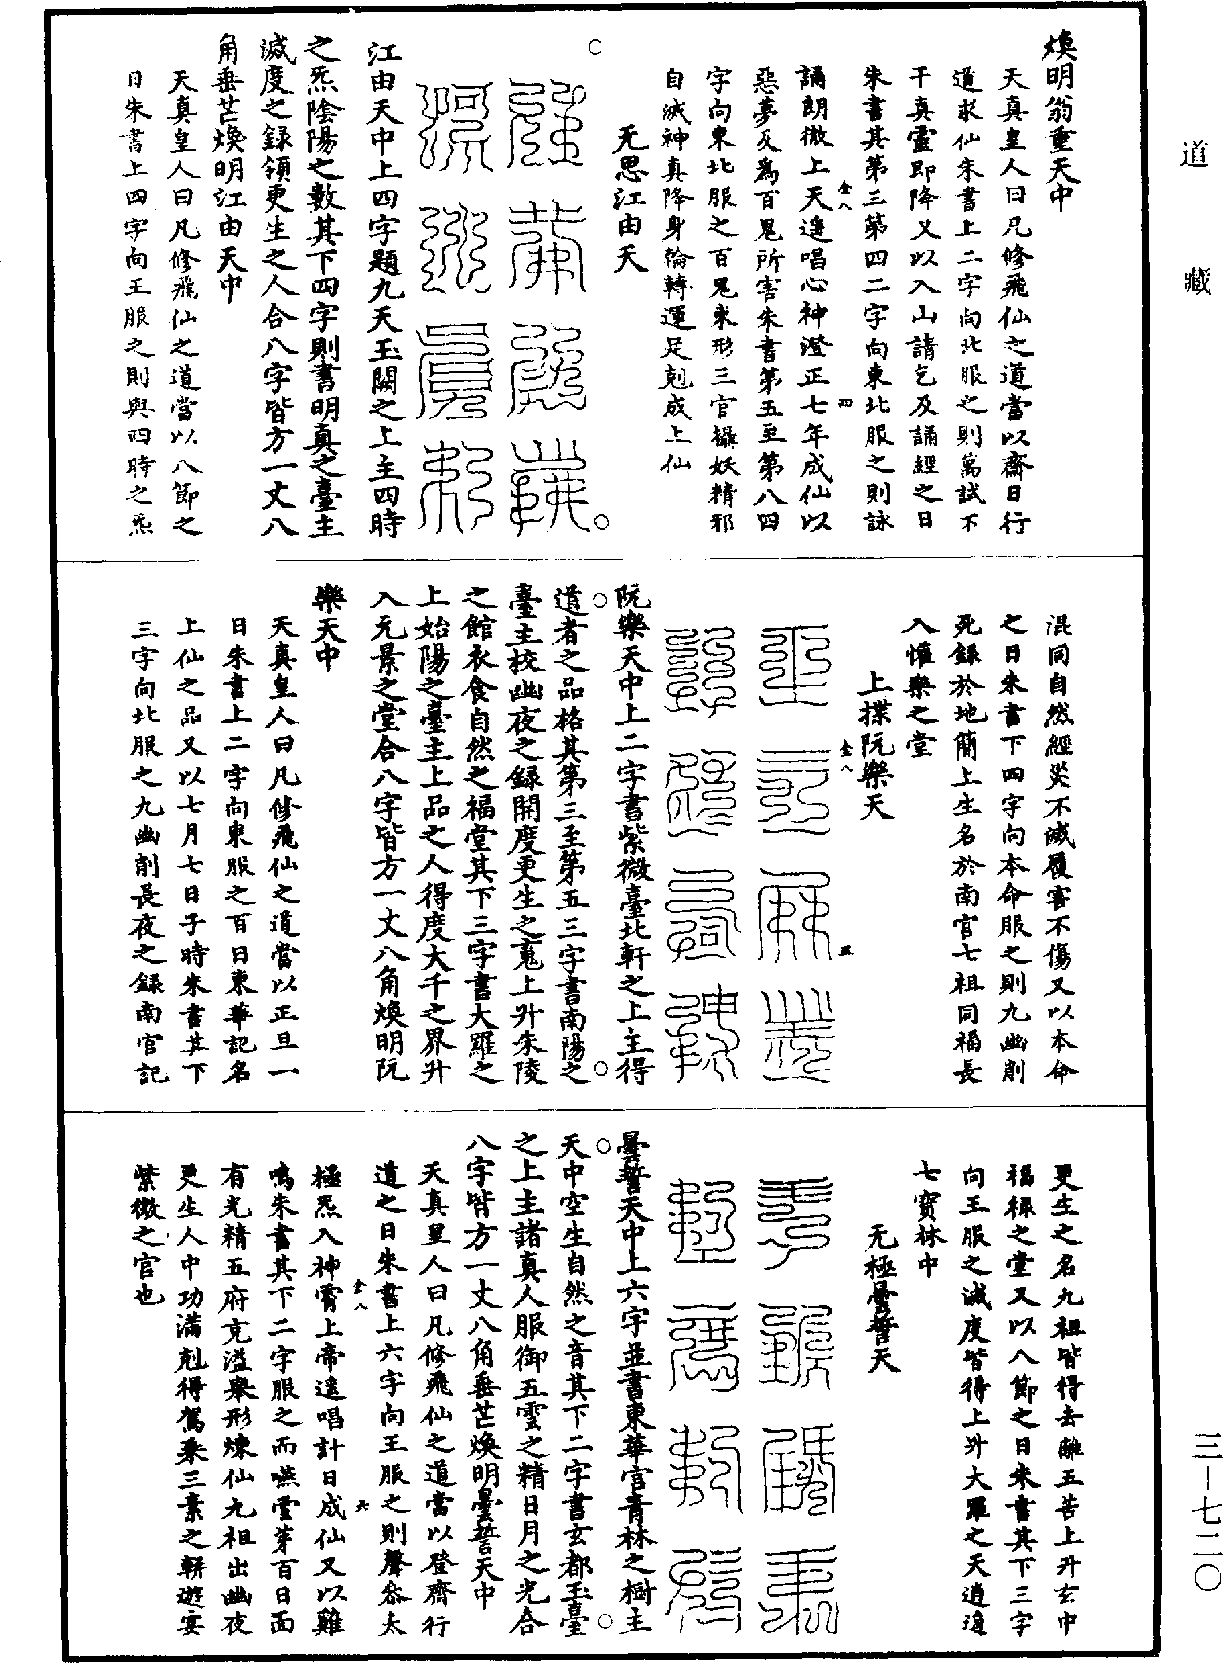 道藏
煥明翁重天中
天真皇人曰凡修飛仙之道當以齋日行
道求仙朱書上二字向北服之則萬試不
干真靈即降又以入山請乞及誦經之日
朱書其第三第四二字向東北服之則詠
全八
四
誦朗徹上天遥唱心神澄正七年成仙以
惡夢及為百鬼所害朱書第五至第八四
字向東北服之百鬼束形三官攝妖精邪
自滅神真降身輪轉運足剋成上仙
无思江由天
江由天中上四字題九天玉闕之上主四時
之炁陰陽之數其下四字則書明真之臺主
滅度之録領更生之人合八字皆方一丈八
角垂芒煥明江由天中
天真皇人曰凡修飛仙之道當以八節之
日朱書上四字向王服之則與四時之炁
混同自然經災不滅履害不傷又以本命
之日朱書下四字向本命服之則九幽削
死録於地簡上生名於南宫七祖同福長
入懽樂之堂
上揲阮樂天
全八
五
阮樂天中上二字書紫微臺北軒之上主得
道者之品格其第三至第五三字書南陽之
臺主校幽夜之録開度更生之䰟上升朱陵
之館衣食自然之福堂其下三字書大羅之
上始陽之臺主上品之人得度大千之界升
入无景之堂合八字皆方一丈八角煥明阮
樂天中
天真皇人曰凡修飛仙之道當以正旦一
日朱書上二字向東服之百日東華記名
上仙之品又以七月七日子時朱書其下
三字向北服之九幽削長夜之録南宫記
更生之名九祖皆得去離五苦上升玄中
福禄之堂又以八節之日朱書其下三字
向王服之滅度皆得上升大羅之天逍遥
七寳林中
无極曇誓天
曇誓天中上六字並書東華宫青林之樹主
天中空生自然之音其下二字書玄都玉臺
之上主諸真人服御五雲之精日月之光合
八字皆方一丈八角垂芒煥明曇誓天中
天真皇人曰凡修飛仙之道當以登齋行
道之日朱書上六字向王服之則聲叅太
全八
六
極炁入神霄上帝遥唱計日成仙又以雞
鳴朱書其下二字服之而嚥雲芽百日面
有光精五府充溢舉形煉仙九祖出幽夜
更生人中功滿剋得駕乗三素之輧遊宴
紫微之宫也
三—七二〇